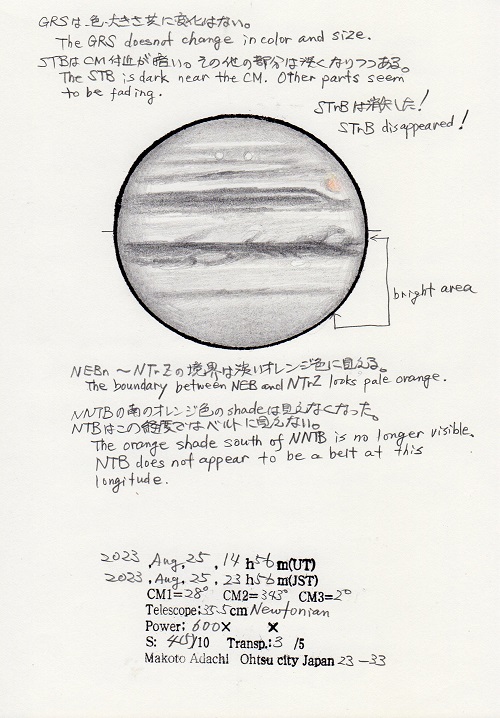 GRSは、色・大きさ共に変化はない。
The GRS doesnot change in color and size.
STBはCM付近が暗い。その他の部分は淡くなりつつある。
The STB is dark near the CM. Other parts seem
to be fading.
STrBは消失した!
STrB disappeared!
bright area
NEBn ～NTrZの境界は淡いオレンジ色に見える。
The boundary between NEB and NTrZ looks pale orange.
NNTBの南のオレンジ色のshadeは見えなくなった。
NTBはこの経度ではベルトに見えない。
The orange shade south of NNTB is no longer visible.
NTB does not appear to be a belt at this
longitude.
2023 , Aug, 25 , 14 h 56 m(UT)
2023 , Aug, 25 , 23 h 56 m(JST)
CM1= 28° CM2= 343° CM3= 2°
Telescope; 35.5 cm Newtonian
Power; 600× ×
S: 4(5)/10 Transp.: 3 /5
Makoto Adachi Ohtsu city Japan 23-33